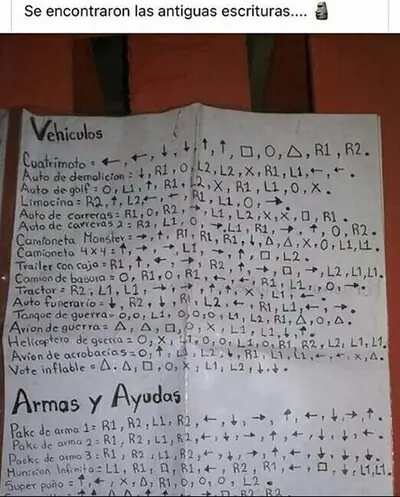 Se encontraron las antiguas escrituras.... 🗿
Vehiculos
Cuatrimoto = ←, ←, ↓, ↓, ↑, ↑, □, O, △, R1, R2.
Auto de demolicion = ↓, R1, O, L2, L2, X, R1, L1, ←, ←.
Auto de golf = O, L1, ↑, R1, L2, X, R1, L1, O, X.
Limocina = R2, ↑, L2, ←, ←, R1, L1, O, →.
Auto de carreras = R1, O, R2, →, L1, L2, X, X, □, R1.
Auto de carreras 2 = R2, L1, O, →, L1, R1, →, ↑, O, R2.
Camioneta Monster = →, ↑, R1, R1, R1, ↓, △, △, X, O, L1, L1.
Camioneta 4x4 = ↑, →, →, L1, →, ↑, □, L2.
Trailer con caja = R1, ↑, ←, →, R2, ↑, →, □, →, L2, L1, L1.
Camion de basura = O, R1, O, R1,
Tractor = R2, L1, L1, →,
Auto funerario = ↓, R2, ↓, R1, L2, ←, R1, L1, ←, →.
Tanque de guerra = O, O, L1, O, O, O, L1, L2, R1, △, O, △.
Avion de guerra = △, △, □, O, X, L1, L1, ↓, ↑.
Helicoptero de guerra = O, X, L1, O, O, L1, O, R1, R2, L2, L1, L1.
Avion de acrobacias = O, ↑, L1, L2, ↓, R1, L1, L1, ←, ←, X, △.
Vote inflable = △, △, □, O, X, L1, L2, ↓, ↓.
Armas y Ayudas
Pake de arma 1 = R1, R2, L1, R2, ←, ↓, →, ↑, ←, ↓, →, ↑.
Pake de arma 2 = R1, R2, L1, R2, ←, ↓, →, ↑, ←, ↓, ↓, ←.
Packe de arma 3 = R1, R2, L1, R2, ←, ↓, →, ↑, ←, ↓, ↓, ↓.
Municion Infinita = L1, R1, □, R1, ←, R2, R1, ←, □, ↓, L1, L1.
Super puño = ↑, ←, X, △, R1, O, O, O, L2.